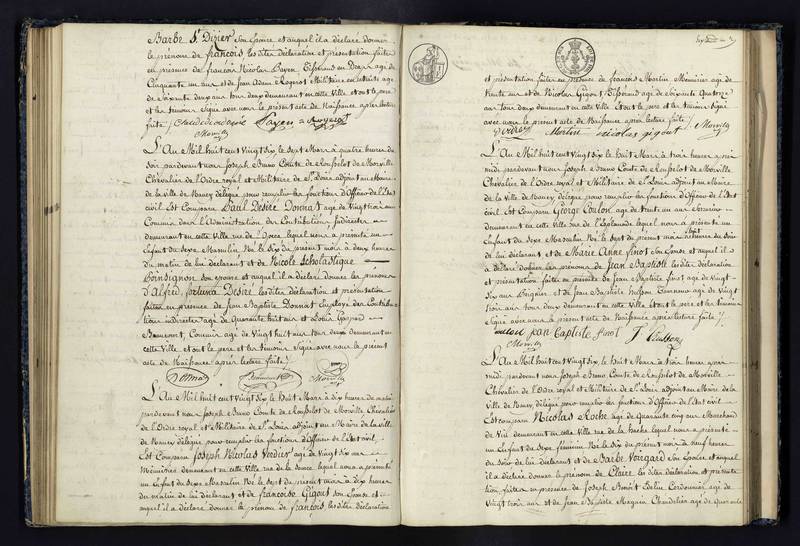 Barbe St. Dizier son épouse et auquel il a déclaré donner
le prénom de françois, les dites déclaration et présentation faites
en présence de françois Nicolas Payen, Tisserand en Draps agé de
Cinquante un ans et de Jean Rogerot Militaire en retraite agé
de Soixante deux ans tous deux demeurant en cette Ville et ont le pere
et les temoins Signé avec nous le présent acte de Naissance après lecture
faite
Payen Rogerot
Morville
L'An Mil huit cent Vingt Six, le Sept Mars à quatre heures du
soir pardevant nous Joseph Bruno Comte de Rousselot de Morville
Chevalier de l'Ordre royal et Militaire de St. Louis adjoint au Maire
de la Ville de Nancy délégué pour remplir les fonctions d'Officier de l'Etat
civil Est Comparu Paul Désiré Donnat agé de Vingt trois ans
Commis dans l'Administration des Contributions Indirectes
demeurant en cette Ville rue lequel nous a présenté un
Enfant du Sexe Masculin Né le Six du présent mois à deux heures
du matin de lui déclarant et de Nicole Scholastique
Boinsignon son épouse et auquel il a déclaré donner les prénoms
d'Alfred fortuna Désiré, les dites déclaration et présentation
faites en présence de Jean Baptiste Donnat Employé des Contribu-
tions indirectes agé de Quarante huit ans et Louis
Beaumont, Commis agé de Vingt huit ans tous deux demeurant en
cette Ville et ont le pere et les temoins Signé avec nous le présent
acte de Naissance après lecture faite
Donnat Beaumont Morville
L'An Mil huit cent Vingt Six, le huit Mars à dix heures du matin
pardevant nous Joseph Bruno Comte de Rousselot de Morville Chevalier
de l'Ordre royal et Militaire de St. Louis adjoint au Maire de la Ville
de Nancy délégué pour remplir les fonctions d'Officier de l'Etat civil
Est Comparu Joseph Nicolas Verdier agé de Vingt six ans
Menuisier demeurant en cette Ville rue de la lequel nous a présenté
un Enfant du Sexe Masculin Né le Sept du présent mois à dix heures
du matin de lui déclarant et de françoise Gigout son épouse et
auquel il a déclaré donner le prénom de françois, les dites déclaration
et présentation faites en présence de françois Martin Menuisier agé de
trente ans et de Nicolas Gigout Tisserand agé de Soixante Quatorze
ans tous deux demeurant en cette Ville et ont le pere et les temoins Signé
avec nous le présent acte de Naissance après lecture faite
Verdier Martin nicolas gigout Morville
L'An Mil huit cent Vingt Six, le huit Mars à trois heures après
midi pardevant nous Joseph Bruno Comte de Rousselot de Morville
Chevalier de l'Ordre royal et Militaire de St. Louis adjoint au Maire
de la Ville de Nancy délégué pour remplir les fonctions d'Officier de l'Etat
civil Est Comparu George Coulon agé de trente un ans
demeurant en cette Ville rue de l'Esplanade lequel nous a présenté un
Enfant du Sexe Masculin Né le Sept du présent mois heures du Soir
de lui déclarant et de Marie Anne finot son épouse et auquel il
a déclaré donner les prénoms de Jean Baptiste les dites déclaration
et présentation faites en présence de Jean Baptiste finot agé de Vingt
Six ans et de Jean Baptiste husson agé de Vingt
trois ans tous deux demeurant en cette Ville et ont le pere et les temoins
Signé avec nous le présent acte de Naissance après lecture faite
coulon jean baptiste finot
Morville
L'An Mil huit cent Vingt Six, le huit Mars à trois heures après
midi pardevant nous Joseph Bruno Comte de Rousselot de Morville
Chevalier de l'Ordre royal et Militaire de St. Louis adjoint au Maire de la
Ville de Nancy délégué pour remplir les fonctions d'Officier de l'Etat civil
Est Comparu Nicolas Roche agé de Quarante cinq ans Marchand
de Vin demeurant en cette Ville rue de la hache lequel nous a présenté
un Enfant du Sexe féminin Né le Six du présent mois à neuf heures
du Soir de lui déclarant et de Barbe Voirgard son épouse et auquel
il a déclaré donner le prénom de Claire les dites déclaration et présenta-
tion faites en présence de Joseph Benoît Cordonnier agé de
Vingt trois ans et de Jean Baptiste Chandelier agé de Quarante